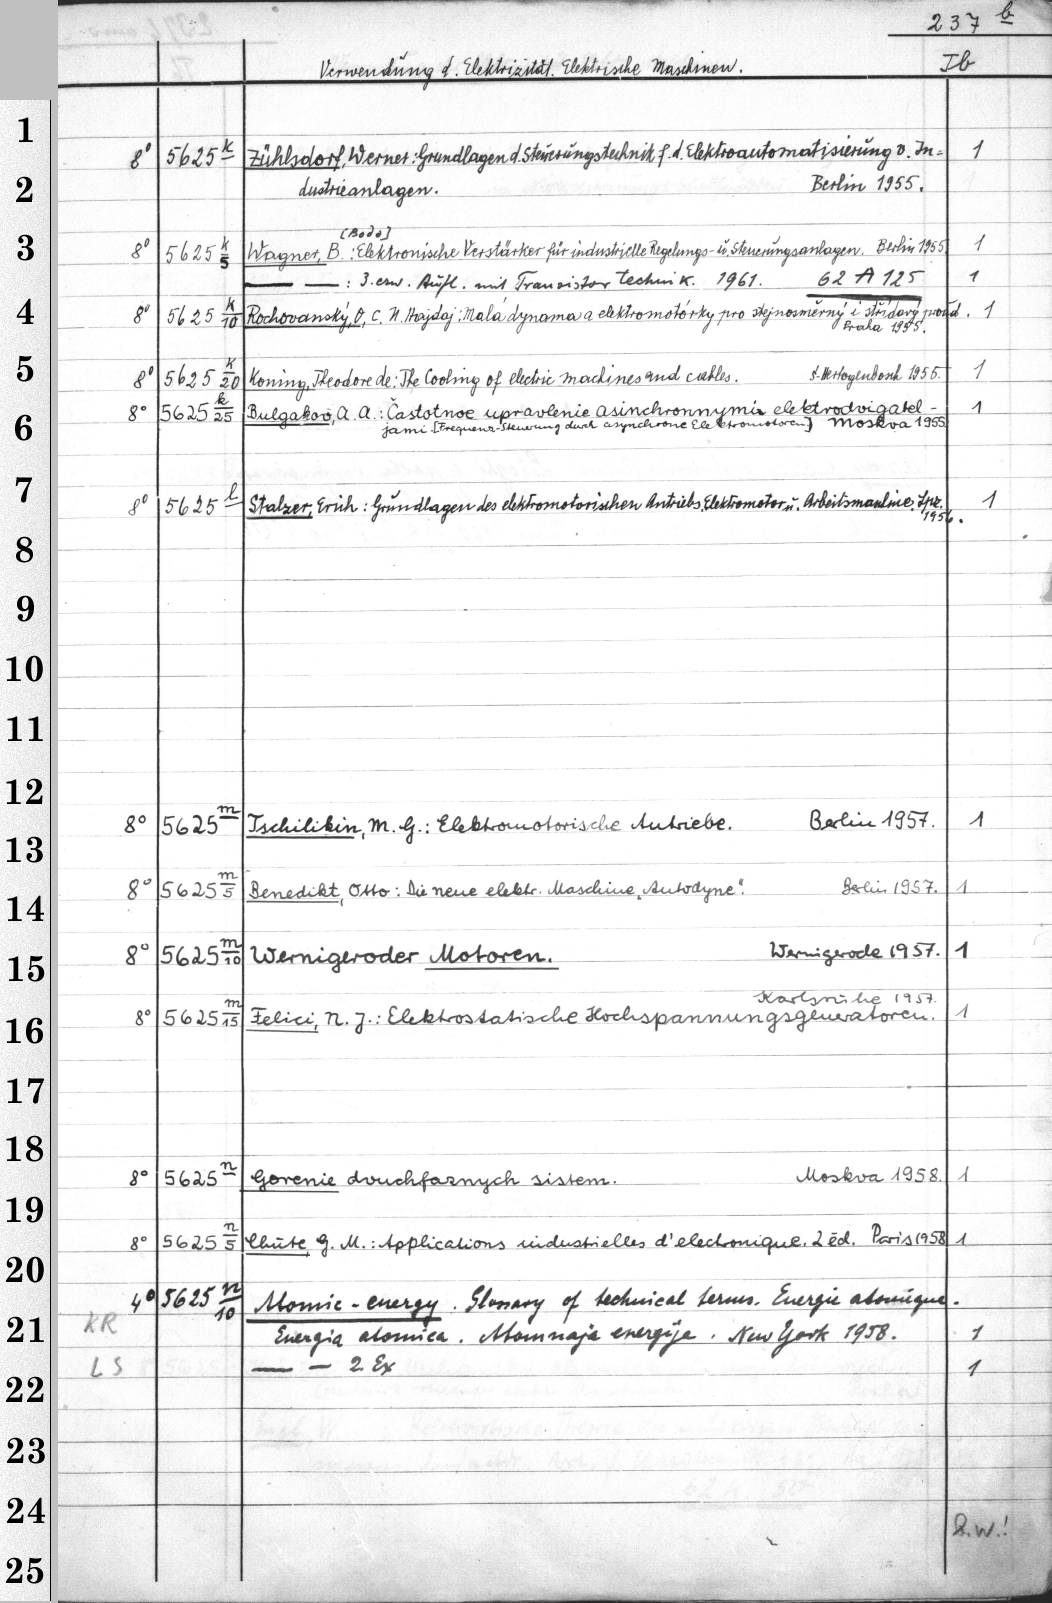 237 b
Verwendung d. Elektrizität. Elektrische Maschinen. Ib
1
8° 5625 k Zühlsdorf, Werner: Grundlagen d. Steuerungstechnik f. d. Elektroautomatisierung v. In= 1
2 dustrieanlagen. Berlin 1955.
[Bodo]
3 8° 5625 k/5 Wagner, B.: Elektronische Verstärker für industrielle Regelungs- u. Steuerungsanlagen. Berlin 1955 1
— — : 3. erw. Aufl. mit Transistortechnik. 1961. 62 A 125 1
4 8° 5625 k/10 Rochovanský, O, C. N. Hajdaj: Malá dynama a elektromotórky pro stejnosměrný i střídavý proud. 1
Praha 1955.
5 8° 5625 k/20 Koning, Theodore de: The Cooling of electric machines and cables. s-Hertogenbosh 1955. 1
8° 5625 k/25 Bulgakov, A. A.: Častotnoe upravlenie asinchronnymi elektrodvigatel- 1
6 jami [Frequenz-Steuerung durch asynchrone Elektromotoren] Moskva 1955
7
8° 5625 l Stalzer, Erich: Grundlagen des elektromotorischen Antriebs. Elektromotor u. Arbeitsmaschine. Lpz. 1
1956.
8
9
10
11
12
8° 5625 m Tschilikin, M. G.: Elektromotorische Antriebe. Berlin 1957. 1
13
8° 5625 m/5 Benedikt, Otto: Die neue elektr. Maschine „Autodyne“. Berlin 1957. 1
14
15 8° 5625 m/10 Wernigeroder Motoren. Wernigerode 1957. 1
Karlsruhe 1957.
16 8° 5625 m/15 Felici, N. J.: Elektrostatische Hochspannungsgeneratoren. 1
17
18
8° 5625 n Gorenie dvuchfaznych sistem. Moskva 1958. 1
19
8° 5625 n/5 Chute, G. M.: Applications industrielles d'electronique. 2 éd. Paris 1958 1
20
4° 5625 n/10 Atomic-energy. Glossary of technical terms. Energie atomique.
21 KR Energia atomica. Atomnaja energija. New York 1958. 1
LS — — 2 Ex 1
22
23
24
8.W.!
25